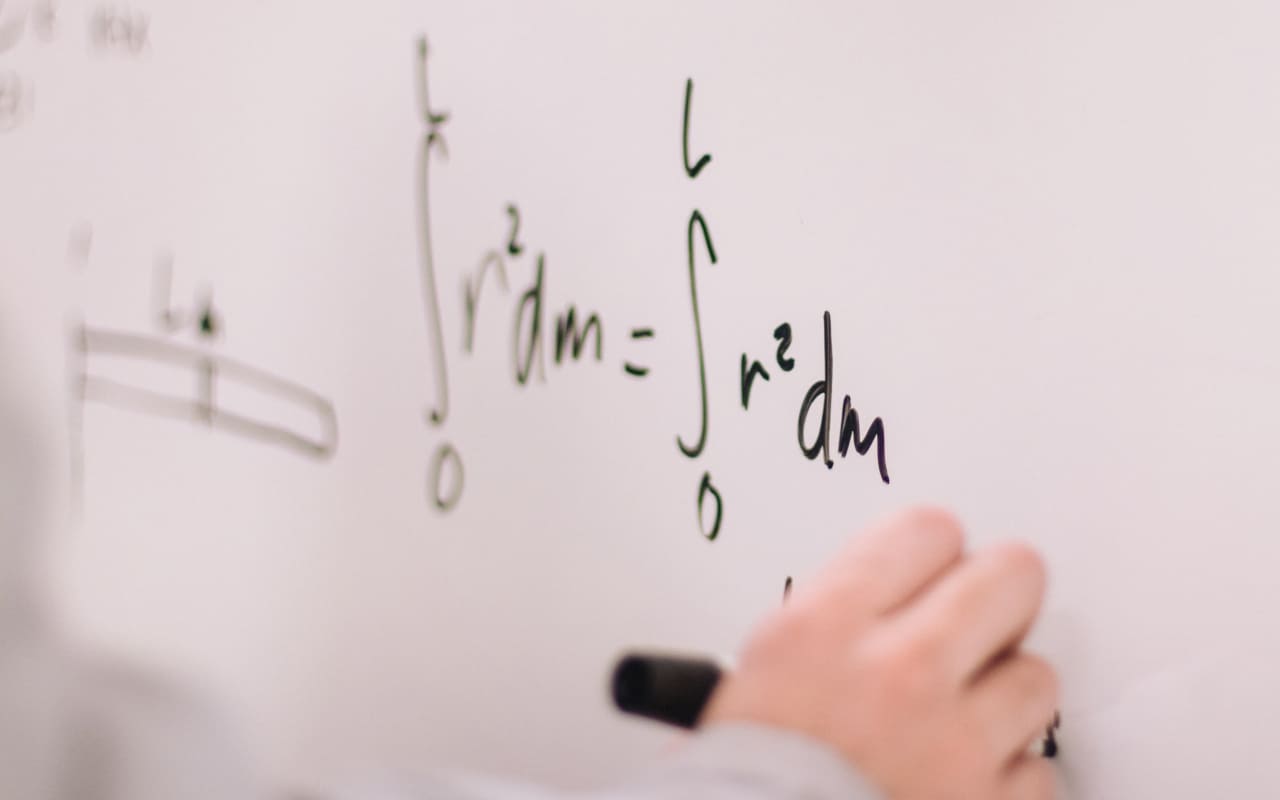 ∫₀ᴸ r² dm = ∫₀ᴸ r² dm
L